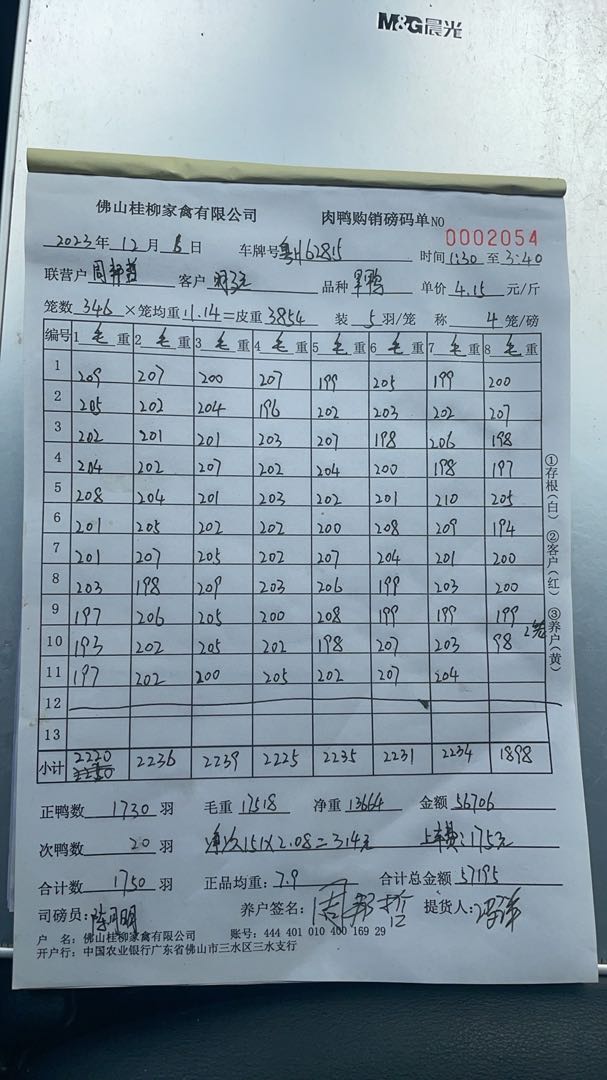 M&G晨光
佛山桂柳家禽有限公司 肉鸭购销磅码单NO 0002054
2023年12月6日 车牌号 62815 时间1:30至3:40
联营户 周邦哲 客户 品种 单价4.15元/斤
笼数346×笼均重11.14=皮重3854 装5羽/笼 称4笼/磅
编号 1毛重 2毛重 3毛重 4毛重 5毛重 6毛重 7毛重 8毛重
1 209 207 200 207 199 205 199 200
2 205 202 204 196 202 203 202 207
3 202 201 201 203 207 198 206 198
4 204 202 207 202 204 200 198 197
5 208 204 201 203 202 201 210 205
6 201 205 202 202 200 208 209 194
7 201 207 205 202 207 204 201 200
8 203 198 209 203 206 199 203 200
9 197 206 205 200 208 199 199 199
10 193 202 205 202 198 207 203 98 2笼
11 197 202 200 205 202 207 204
12
13
小计 2220 2236 2239 2225 2235 2231 2234 1898
①存根(白) ②客户(红) ③养户(黄)
正鸭数1730羽 毛重17518 净重13664 金额56706
次鸭数20羽 151×2.08=314元 上车费:175元
合计数1750羽 正品均重:7.9 合计总金额57195
司磅员:陈明 养户签名: 周邦 提货人:
户 名:佛山桂柳家禽有限公司 账号:444 401 010 400 169 29
开户行:中国农业银行广东省佛山市三水区三水支行